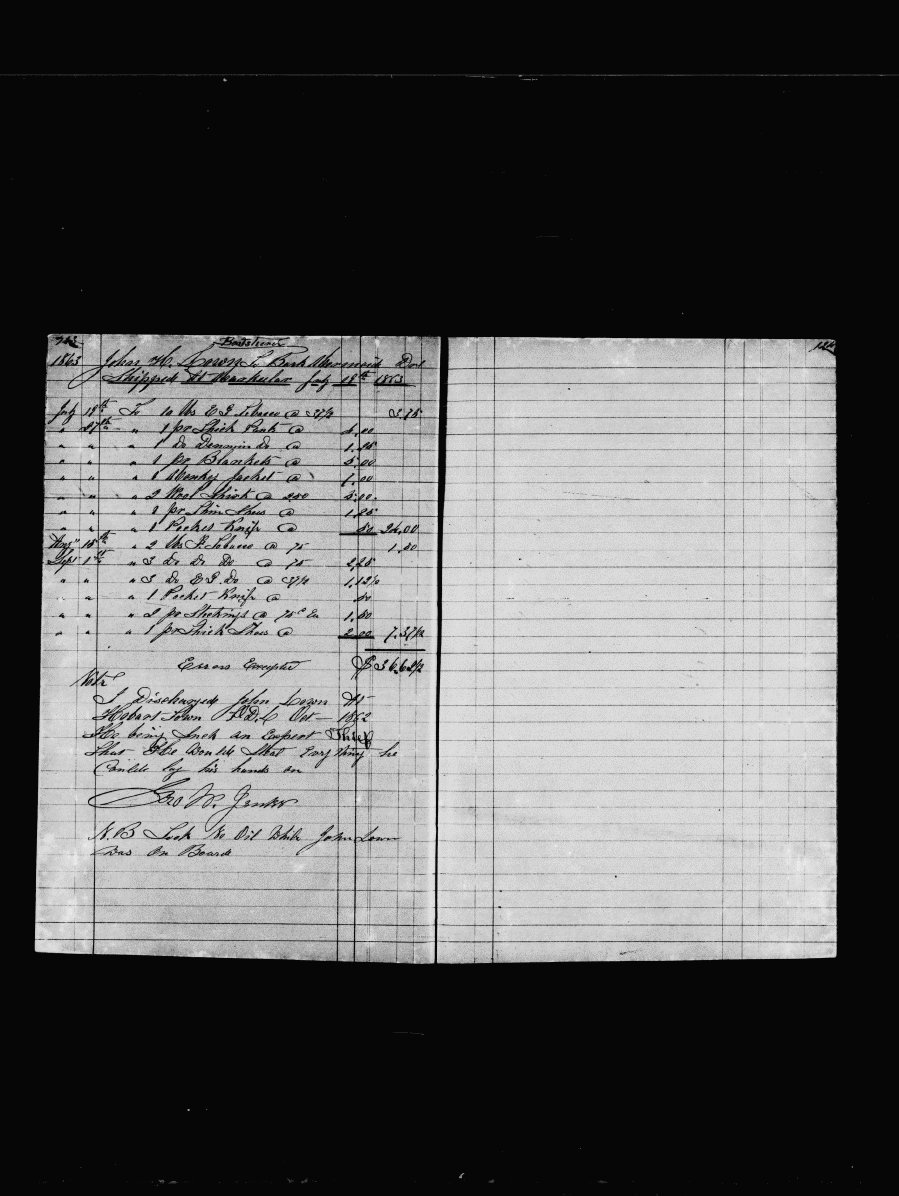 Boatsteerer
1863 John H. To Bark Mermaid Dr
Shipped At July 18th 1863
July 18th To 10 lbs E G Tobacco @ 37½ 3.75
" 27th " 1 pr Thick Pants @ 4.00
" " " 1 Do Dennim Do @ 1.25
" " " 1 pr Blankets @ 5.00
" " " 1 Monkey Jacket @ 7.00
" " " 2 Wool Shirts @ 250 5.00
" " " 1 pr Thin Shoes @ 1.25
" " " 1 Pocket Knife @ 50 24.00
Augs 15th " 2 lbs P. Tobacco @ 75 1.50
Sept 1st " 3 Do Do Do @ 75 2.25
" " " 3 Do E G. Do @ 37½ 1.12½
" " " 1 Pocket Knife @ 50
" " " 2 pr Stockings @ 75c Ea 1.50
" " " 1 pr Thick Shoes @ 2.00 7.37½
Errors Excepted $36.62½
Note
I Discharged John At
Hobart Town V.D.L Oct - 1862
He being Such an Expert Thief
that He Would Steal Evrything he
Could lay his hands on
Geo W. Jenks
N.B Took No Oil While John
was On Board